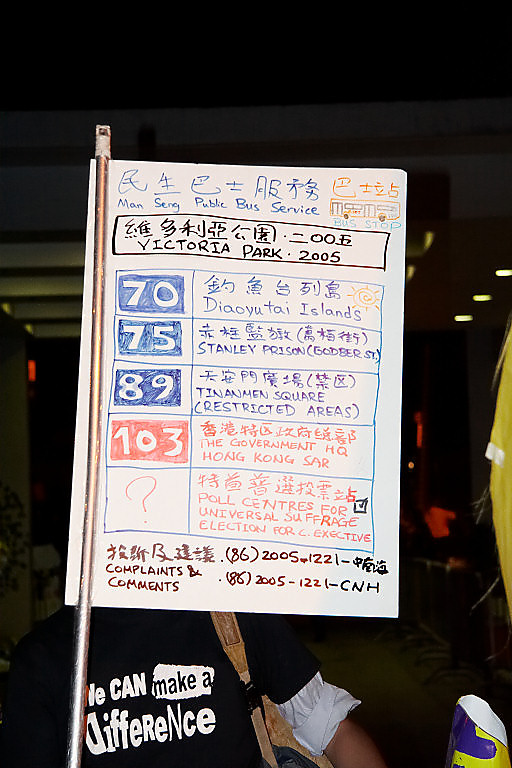 民生巴士服務 巴士站
Man Seng Public Bus Service BUS STOP
維多利亞公園·二〇〇五
VICTORIA PARK · 2005
70 釣魚台列島
Diaoyutai Islands
75 赤柱監獄(高栢街)
STANLEY PRISON (GODBER ST.)
89 天安門廣場(禁区)
TINANMEN SQUARE
(RESTRICTED AREAS)
103 香港特区政府總部
THE GOVERNMENT HQ
HONG KONG SAR
? 特首普選投票站
POLL CENTRES FOR
UNIVERSAL SUFFRAGE
ELECTION FOR C. EXECTIVE
投訴及建議 · (86) 2005-1221-中南海
COMPLAINTS & · (86) 2005-1221-CNH
COMMENTS
We CAN make a
difference